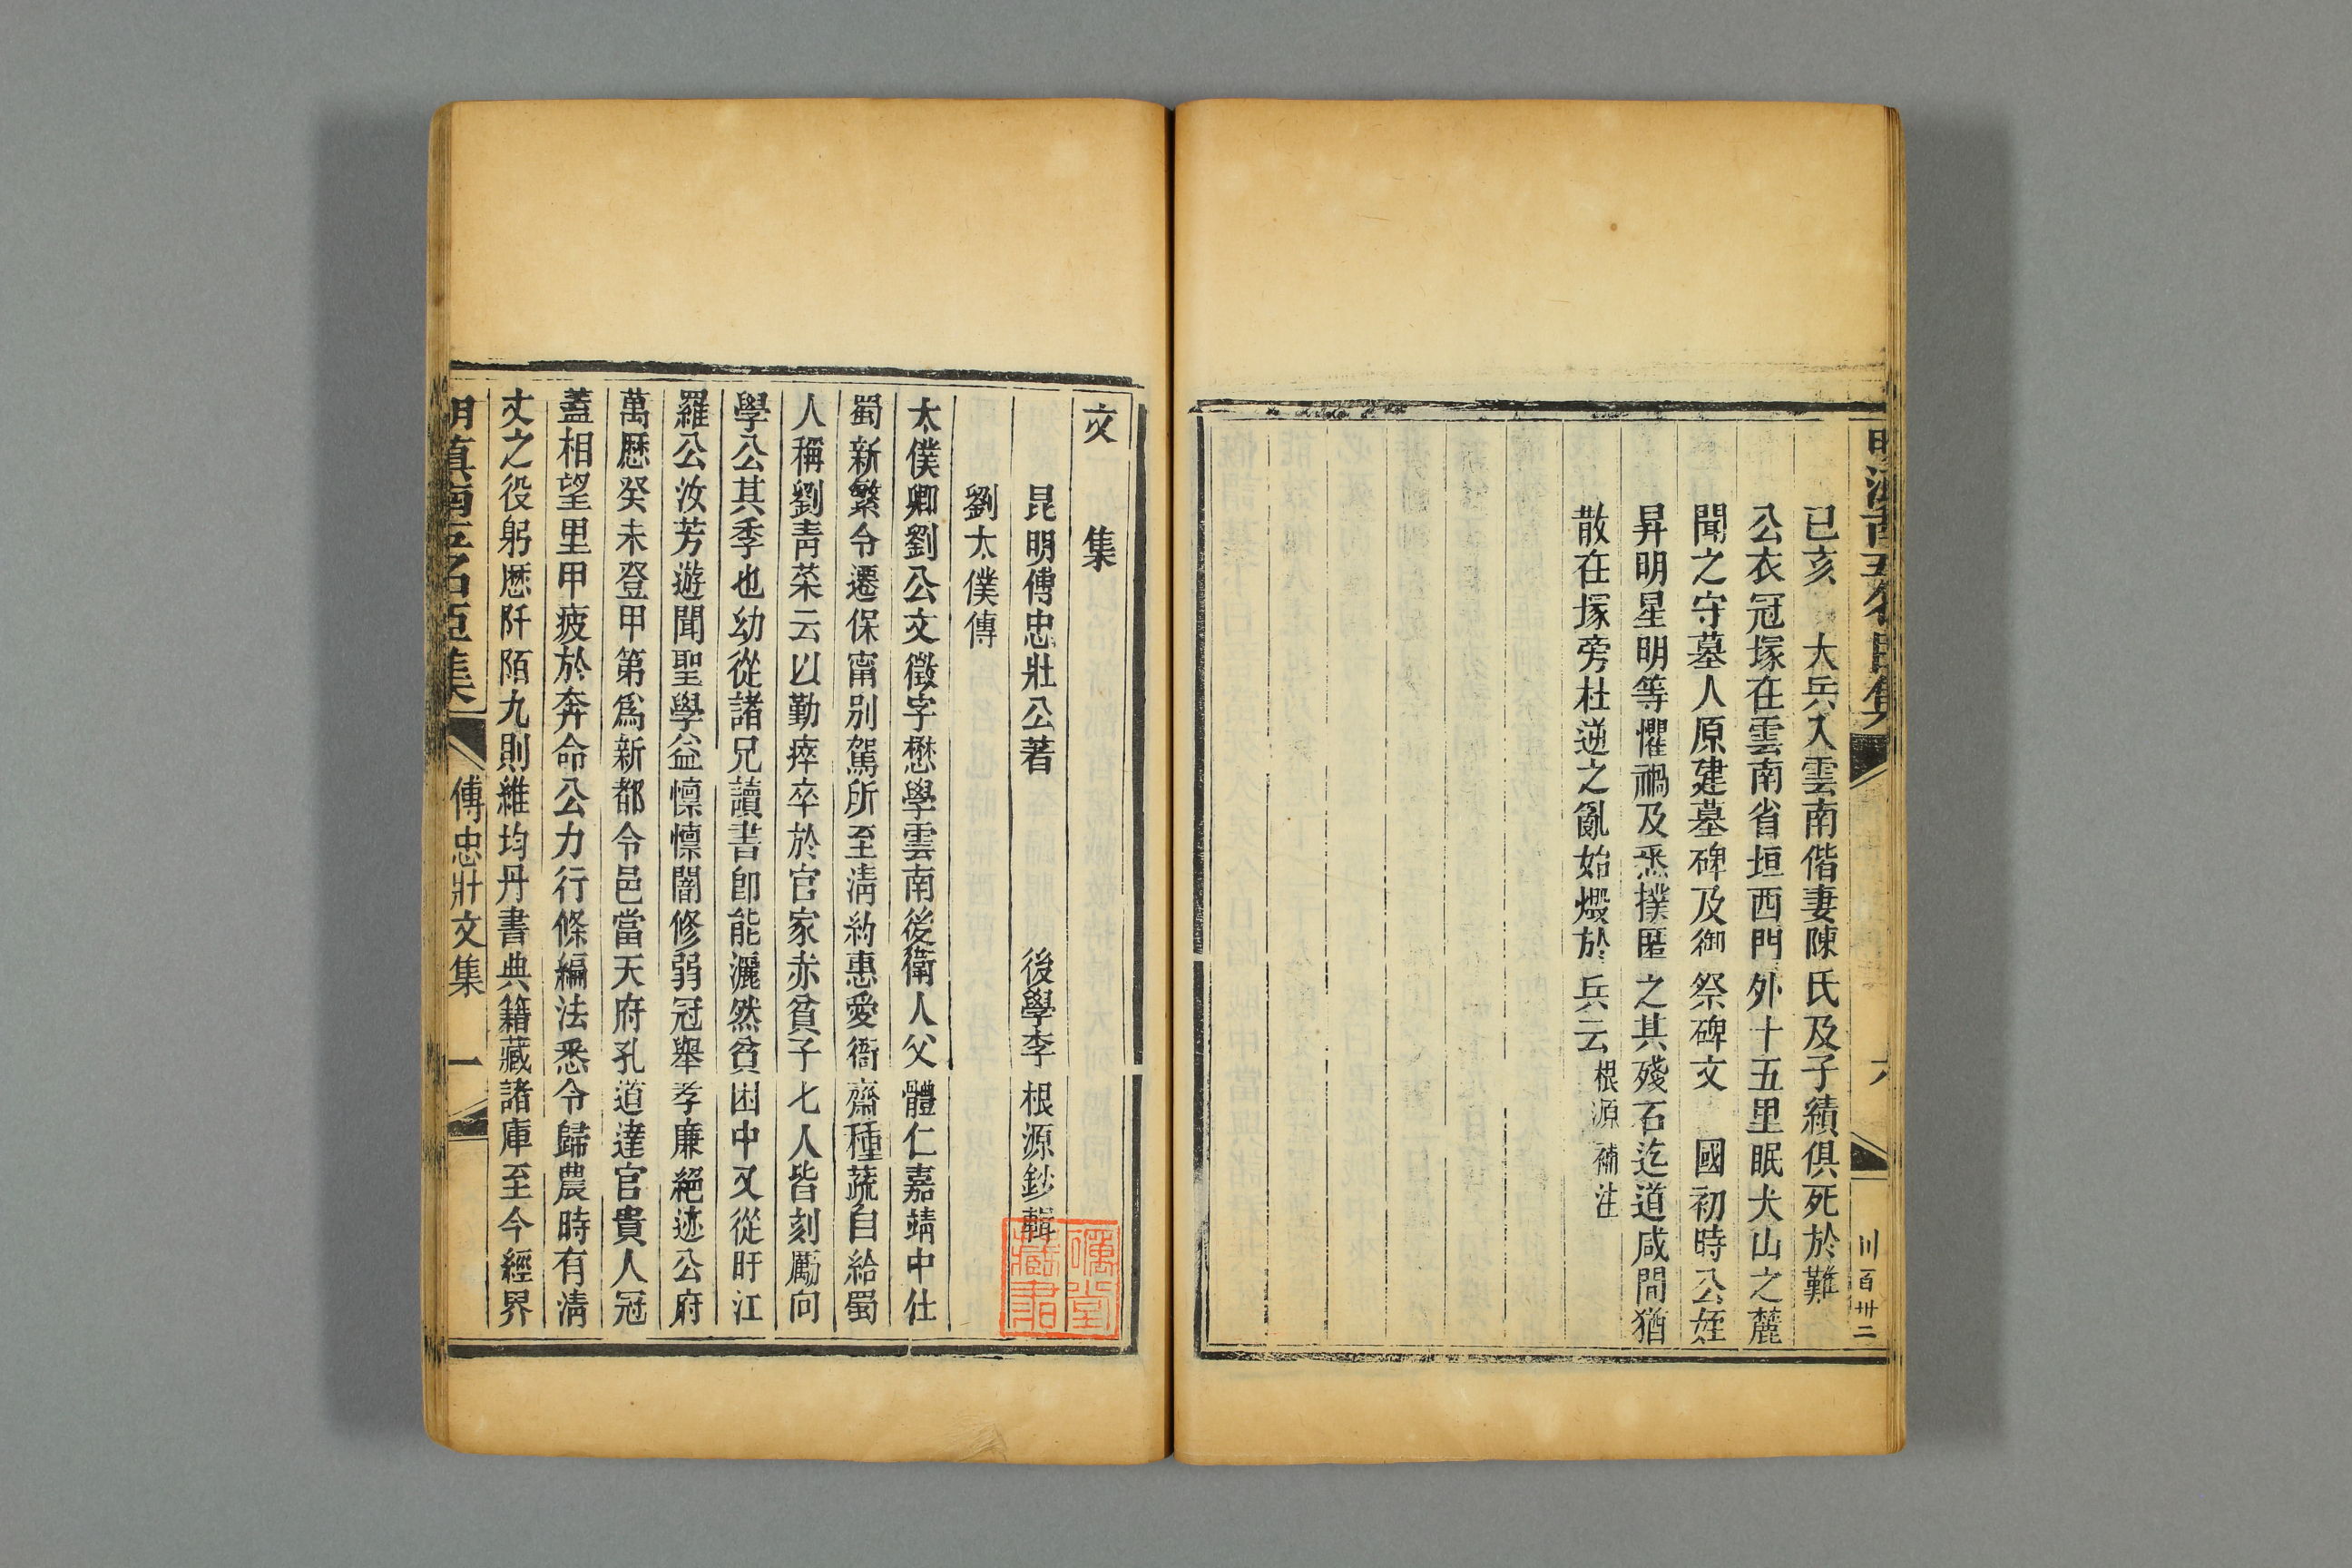 已亥　大兵入雲南偕妻陳氏及子績俱死於難
公衣冠塚在雲南省垣西門外十五里眠犬山之麓
聞之守墓人原建墓碑及御祭碑文　國初時公姪
昇明星明等懼禍及悉撲匿之其殘石迄道咸間猶
散在塚旁杜逆之亂始燬於兵云根源補注
六
川百卅二
文　集
昆明傅忠壯公著　後學李根源鈔輯
劉太僕傳
太僕卿劉公文徵字懋學雲南後衛人父體仁嘉靖中仕
蜀新繁令遷保甯别駕所至淸約惠愛衙齋種蔬自給蜀
人稱劉靑菜云以勤瘁卒於官家赤貧子七人皆刻勵向
學公其季也幼從諸兄讀書卽能灑然貧困中又從旴江
羅公汝芳遊聞聖學益懍懍闇修弱冠舉孝廉絕迹公府
萬厯癸未登甲第爲新都令邑當天府孔道達官貴人冠
蓋相望里甲疲於奔命公力行條編法悉令歸農時有淸
丈之役躬厯阡陌九則維均丹書典籍藏諸庫至今經界
明滇南五名臣集　傅忠壯文集　一
礪堂藏書